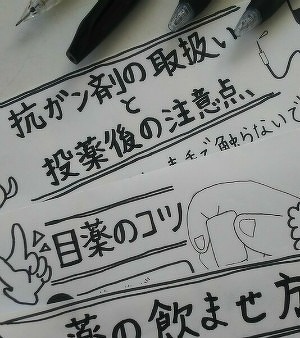 抗ガン剤の取扱い
と
投薬後の注意点
触らないで
目薬のコツ
薬の飲ませ方